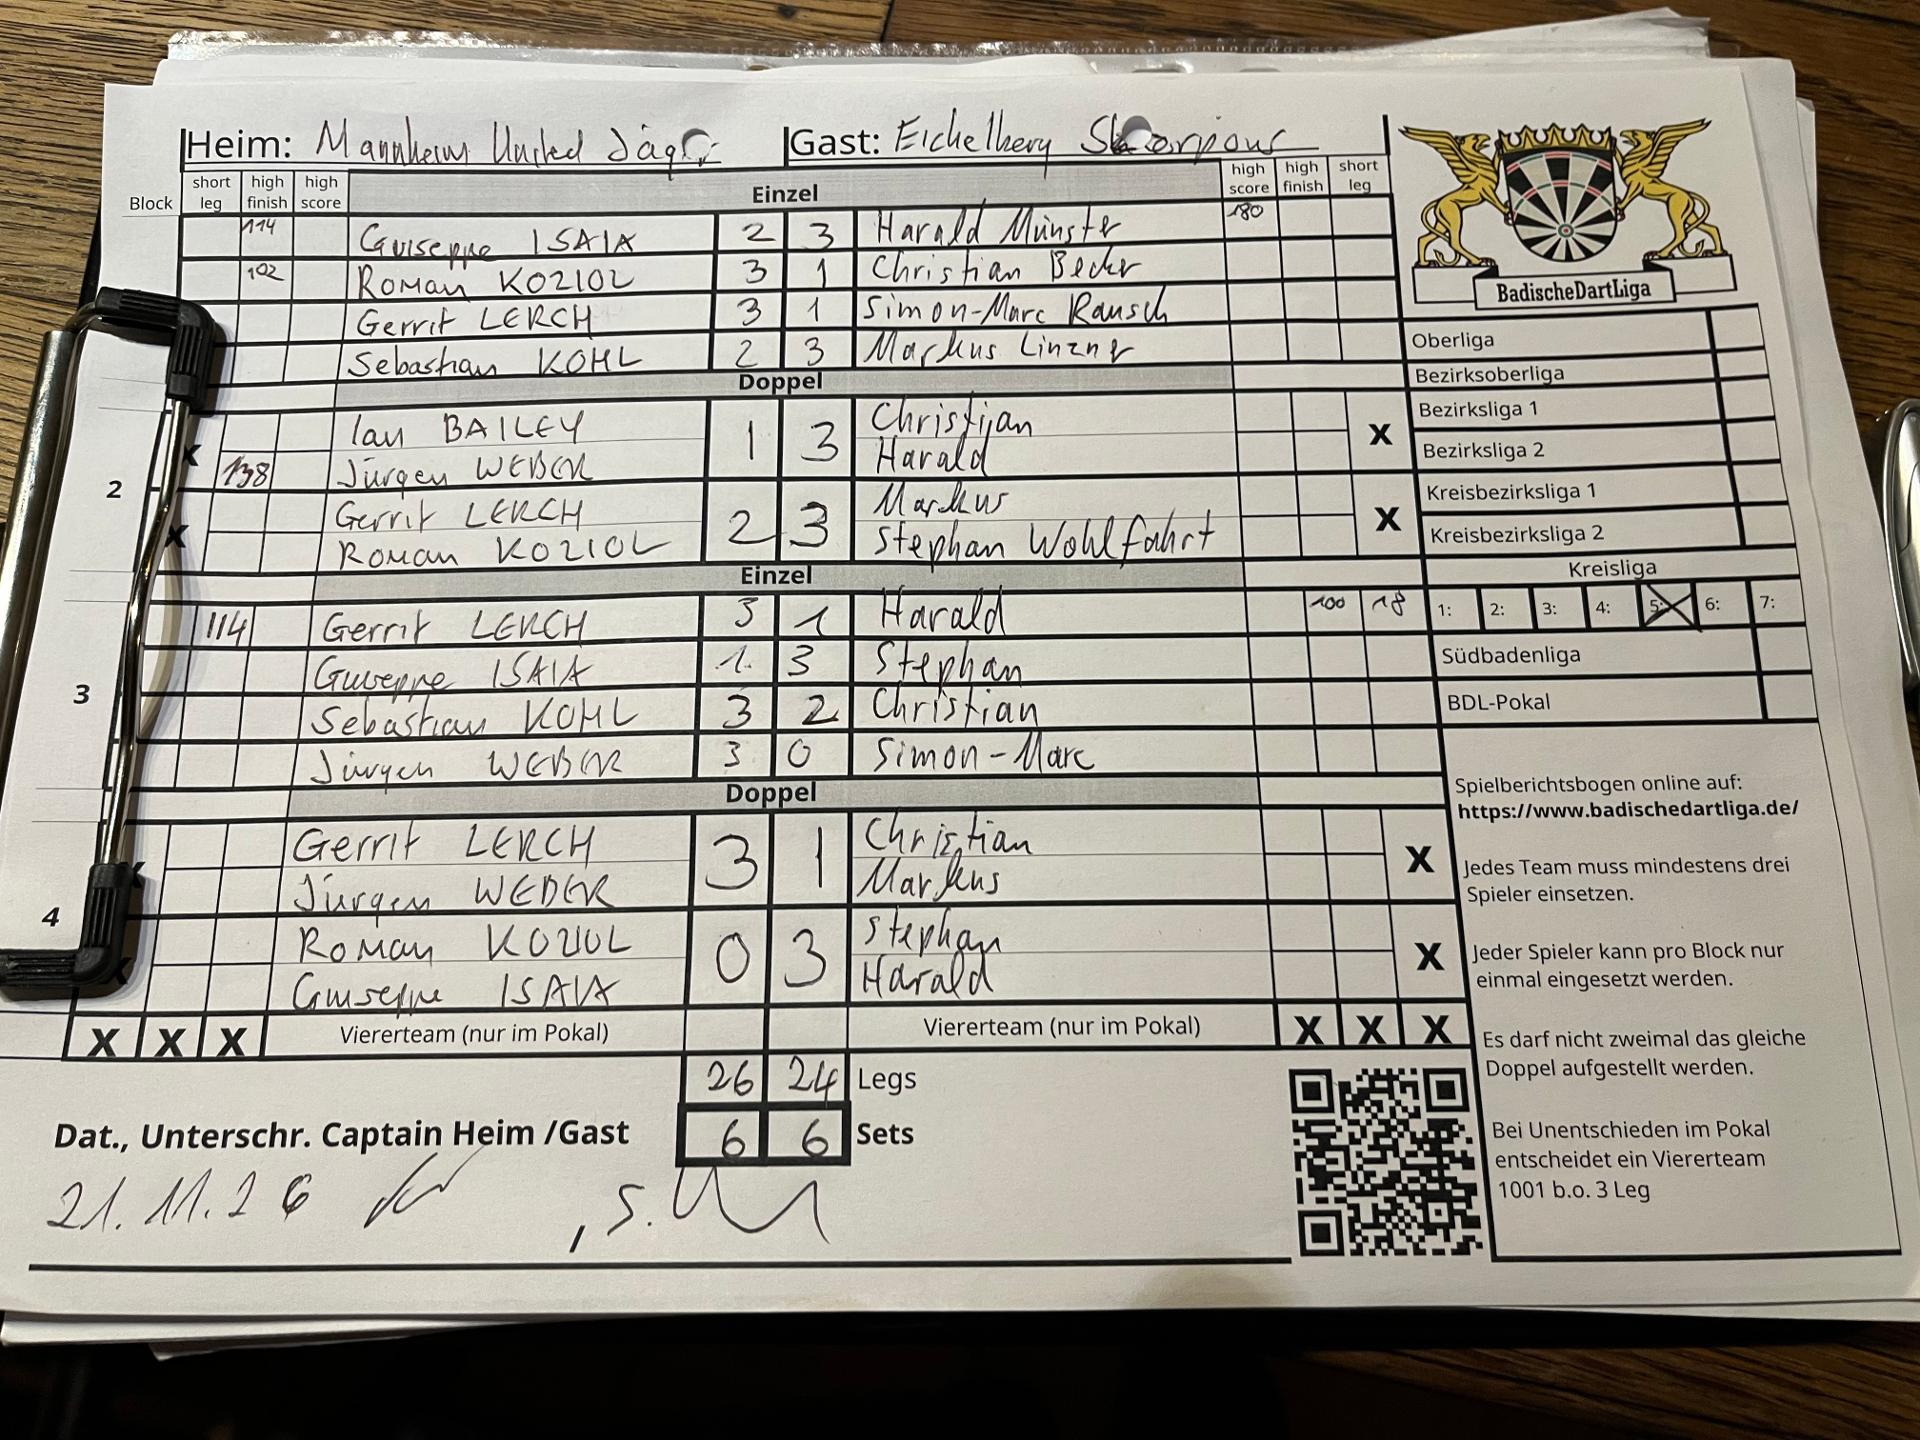 Heim: Mannheim United Jäger Gast: Eichelberg Skorpions
Block short leg high finish high score Einzel high score high finish short leg
114 Guiseppe ISAIA 2 3 Harald Münster 180
102 Roman KOZIOL 3 1 Christian Becker
Gerrit LERCH 3 1 Simon-Marc Rausch
Sebastian KOHL 2 3 Markus Linzner
Doppel
2
Ian BAILEY 1 3 Christian X
138 Jürgen WEBER Harald
Gerrit LERCH 2 3 Markus X
Roman KOZIOL Stephan Wohlfahrt
Einzel
3
114 Gerrit LERCH 3 1 Harald 100 18
Guiseppe ISAIA 1 3 Stephan
Sebastian KOHL 3 2 Christian
Jürgen WEBER 3 0 Simon-Marc
Doppel
4
Gerrit LERCH 3 1 Christian X
Jürgen WEBER Markus
Roman KOZIOL 0 3 Stephan X
Guiseppe ISAIA Harald
X X X Viererteam (nur im Pokal) Viererteam (nur im Pokal) X X X
26 24 Legs
Dat., Unterschr. Captain Heim /Gast 6 6 Sets
21.11.26
BadischeDartLiga
Oberliga
Bezirksoberliga
Bezirksliga 1
Bezirksliga 2
Kreisbezirksliga 1
Kreisbezirksliga 2
Kreisliga
1: 2: 3: 4: 5: 6: 7:
Südbadenliga
BDL-Pokal
Spielberichtsbogen online auf:
https://www.badischedartliga.de/
Jedes Team muss mindestens drei
Spieler einsetzen.
Jeder Spieler kann pro Block nur
einmal eingesetzt werden.
Es darf nicht zweimal das gleiche
Doppel aufgestellt werden.
Bei Unentschieden im Pokal
entscheidet ein Viererteam
1001 b.o. 3 Leg